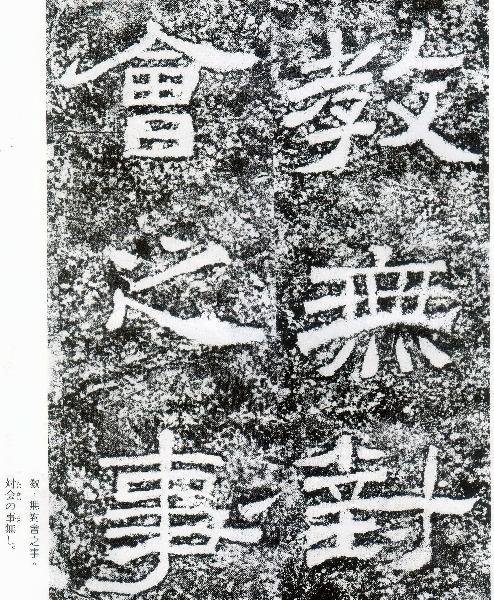 教無對
會之事
教。無對會之事。
対会の事無し。